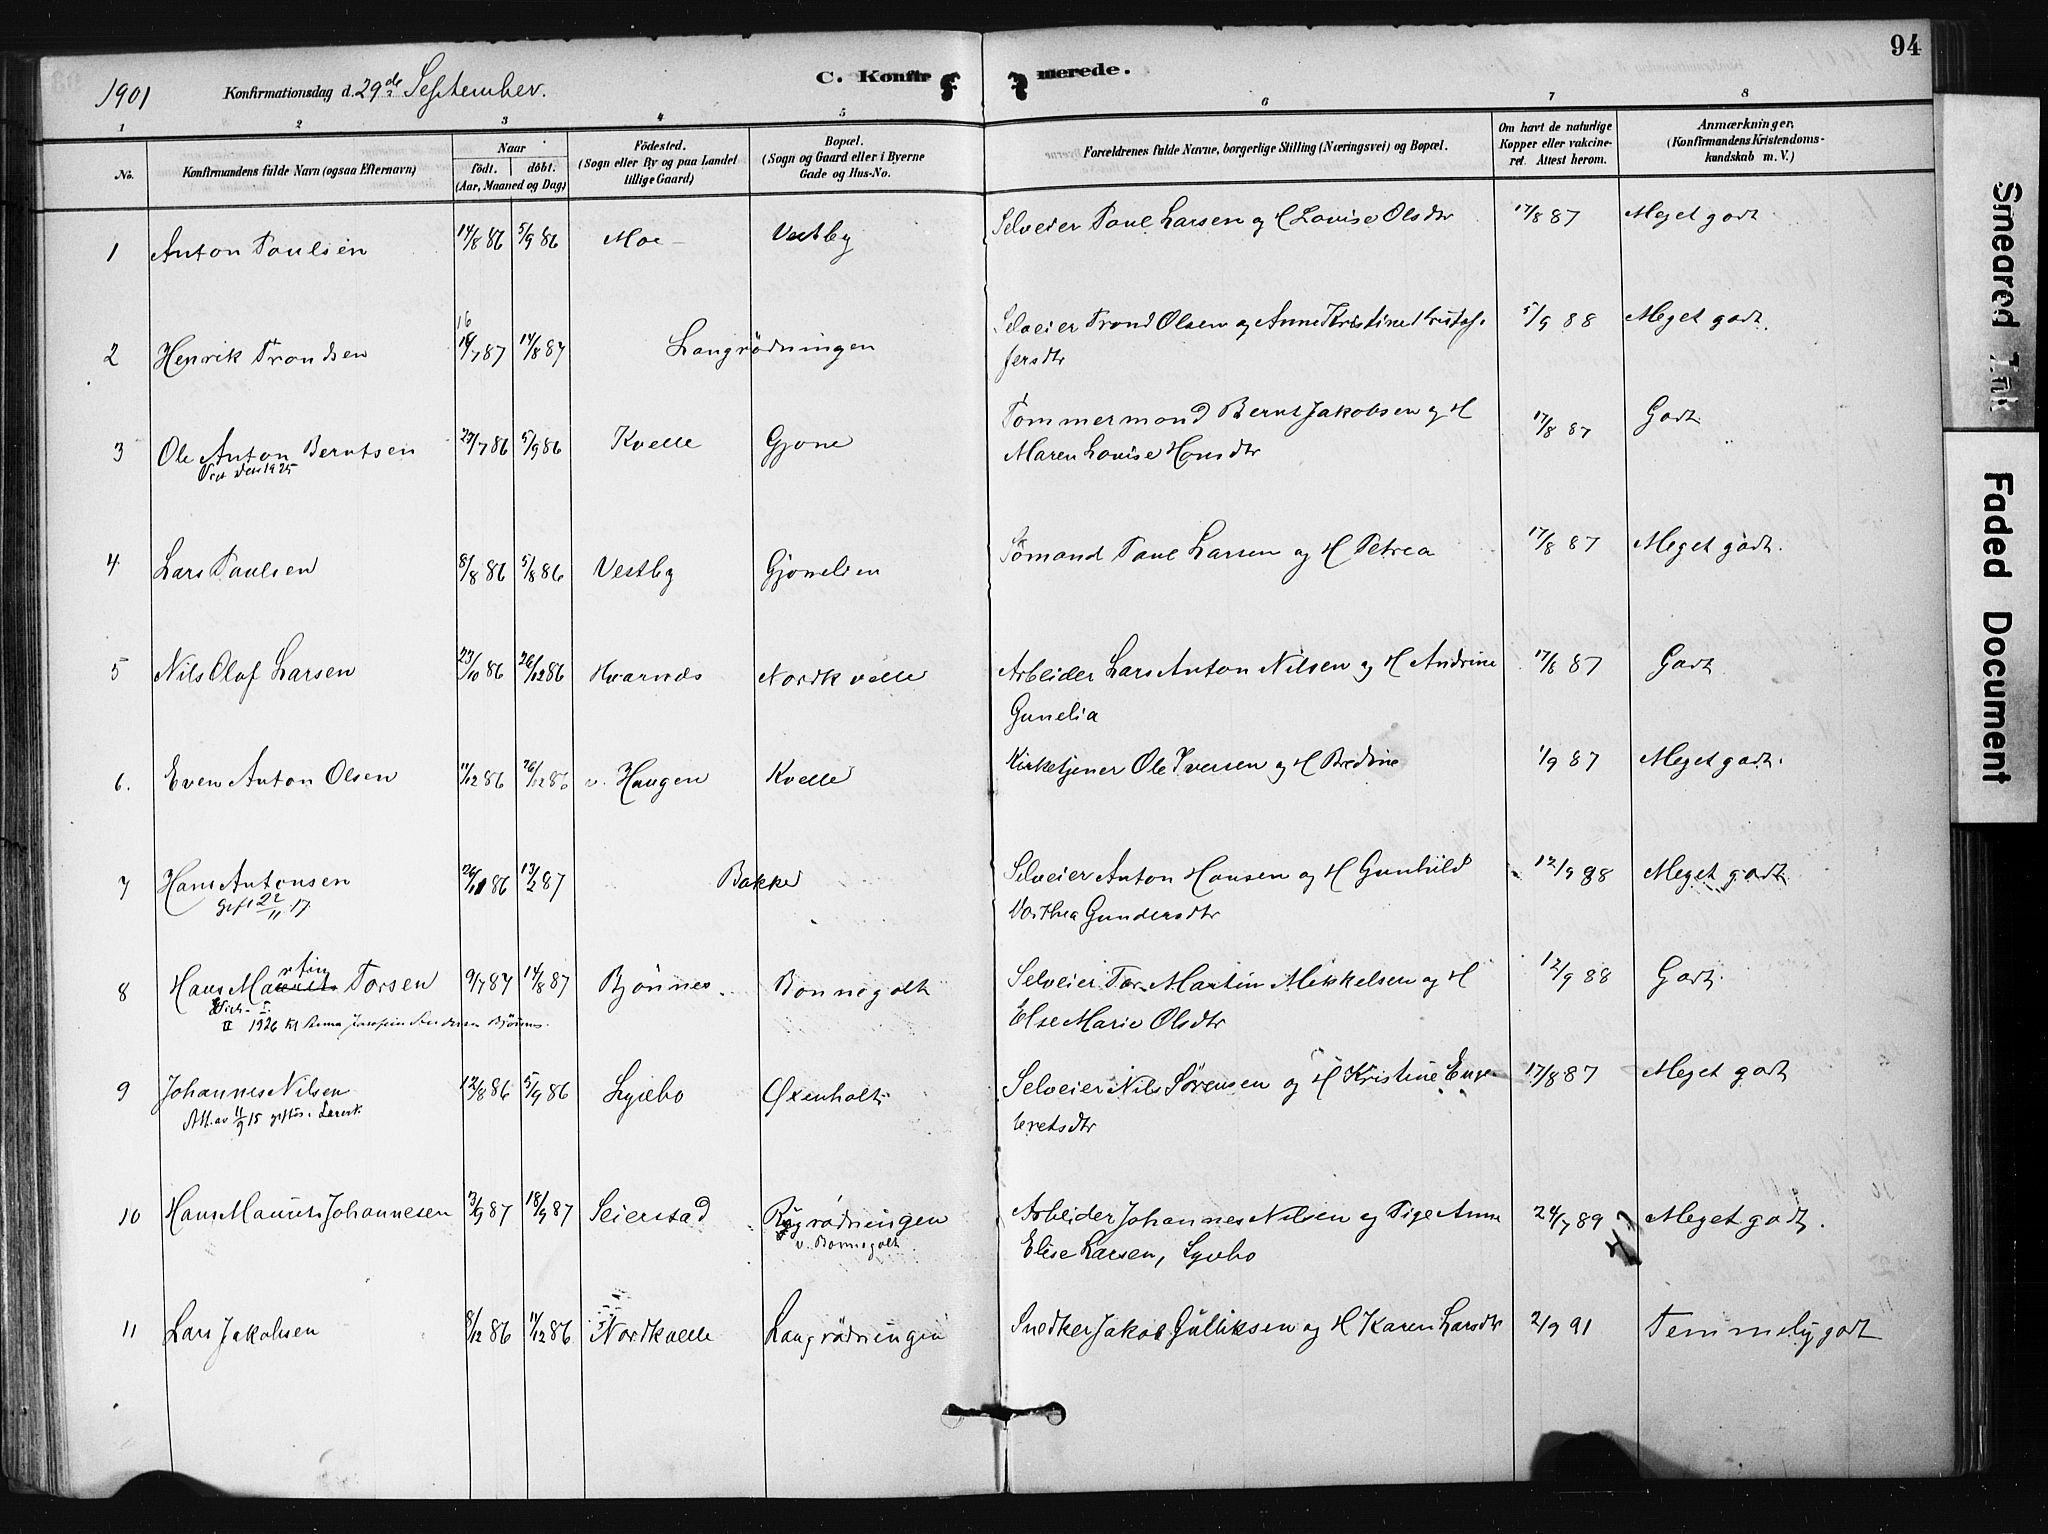 94
1901 Konfirmationsdag d. 29de September. C. Konfirmerede.
1 2 3 4 5 6 7 8
No. Konfirmandens fulde Navn (ogsaa Efternavn) Naar født. døbt. (Aar, Maaned og Dag) Fødested. (Sogn eller By og paa Landet tillige Gaard) Bopæl. (Sogn og Gaard eller i Byerne Gade og Hus-No. Forældrenes fulde Navne, borgerlige Stilling (Næringsvei) og Bopæl. Om havt de naturlige Kopper eller vakcineret. Attest herom. Anmærkninger. (Konfirmandens Kristendomskundskab m. V.)
1 Anton Paulsen 14/8 86 5/9 86 Moe Vestby Selveier Paul Larsen og H Lovise Olsdtr 17/8 87 Meget godt
2 Henrik Trondsen 16 /7 87 14/8 87 Langrödningen Selveier Trond Olsen og Anne Kristine Kristof- 5/9 88 Meget godt.
fersdtr
3 Ole Anton Berntsen 27/7 86 5/9 86 Kvelle Gjone Tømmermand Bernt Jakobsen og H 17/8 87 Godt
1925
Maren Lovise Hansdtr
4 Lars Paulsen 8/8 86 5/8 86 Vestby Gjonelien Sömand Paul Larsen og H Petrea 17/8 87 Meget godt.
5 Nils Olaf Larsen 23/10 86 26/12 86 Hvarnes Nordkvelle Arbeider Lars Anton Nilsen og H Andrine 17/8 87 Godt
Gunelia
6. Even Anton Olsen 11/12 86 26/12 86 v. Haugen Kvelle Kirketjener Ole Iversen og H Bredine 1/9 87 Meget godt.
7 Hans Antonsen 26/11 86 13/2 87 Bakke Selveier Anton Hansen og H Gunhild 12/9 88 Meget godt
gift 22/11 17.
Dorthea Gundersdtr
8 Hans Martin Torsen 9/7 87 14/8 87 Bjönnes. Bonnegolt Selveier Tor Martin Mikkelsen og H 12/9 88 Godt.
II 1926 Josefine Andersen Bjönnes.
Else Marie Olsdtr
9 Johannes Nilsen 12/8 86 5/9 86 Lysebo Oxenholt Selveier Nils Sörensen og H Kristine Enge- 17/8 87 Meget godt
Att. av 11/9 15 giftes i Larvik
bretsdtr
10 Hans Maurits Johannesen 3/9 87 18/9 87 Seierstad Rygrödningen Arbeider Johannes Nilsen og Pige Anne 24/7 89 Meget godt.
v. Bonnegolt
Elise Larsen, Lysebo
11 Lars Jakobsen 8/12 86 11/12 86 Nordkvelle Langrödningen Snedker Jakob Gulliksen og H Karen Larsdtr 2/9 91 Temmelig godt
Smeared Ink
Faded Document